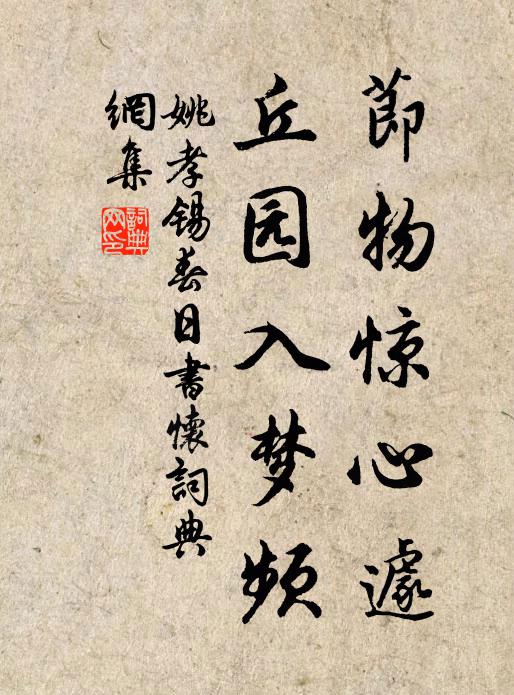 節物惊心遽
丘园入梦频
姚孝锡春日書懷詞典
網集
詞典
网印